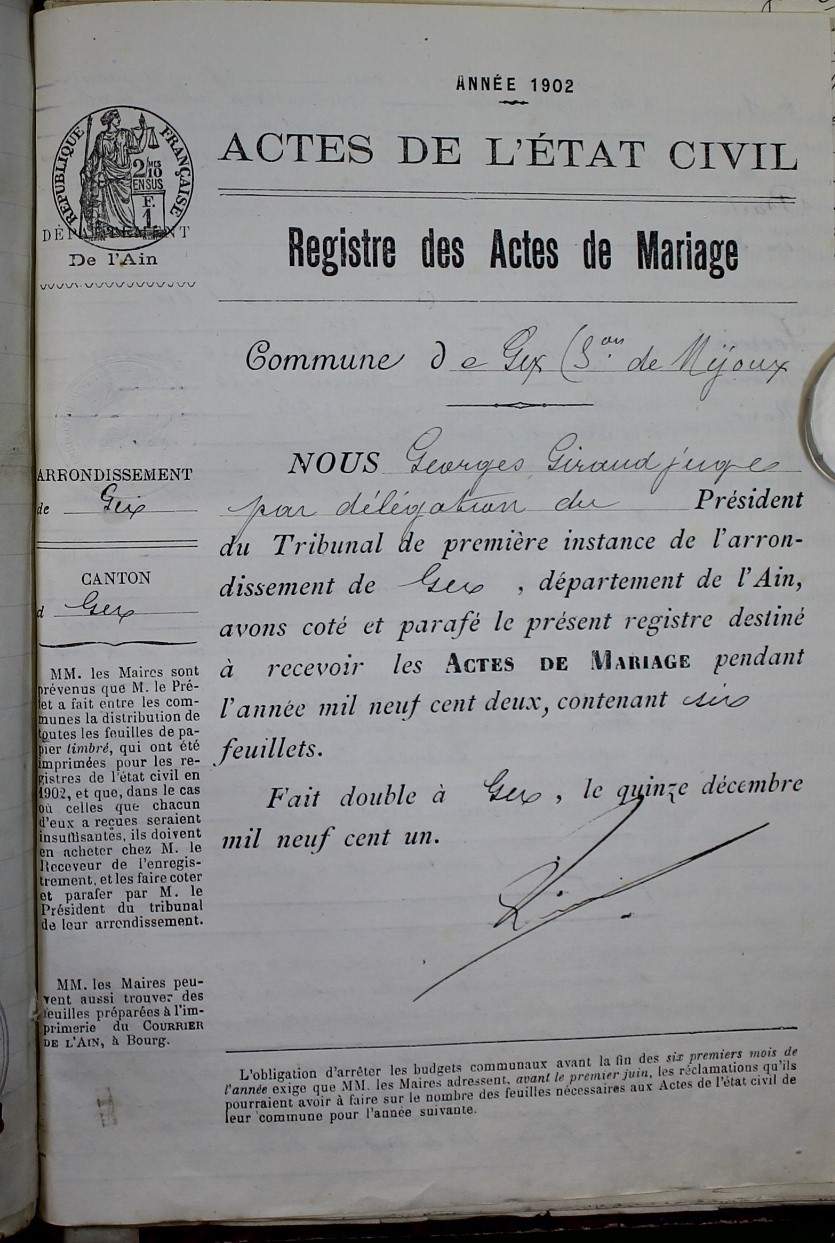 ANNÉE 1902
ACTES DE L'ÉTAT CIVIL
Registre des Actes de Mariage
Commune de Gex (Son de Mijoux
RÉPUBLIQUE FRANÇAISE
2/10 MES
EN SUS
F.
1
DÉPARTEMENT
De l'Ain
ARRONDISSEMENT
de Gex
CANTON
d Gex
MM. les Maires sont
prévenus que M. le Pré-
et a fait entre les com-
munes la distribution de
toutes les feuilles de pa-
pier timbré, qui ont été
imprimées pour les re-
gistres de l'état civil en
1902, et que, dans le cas
où celles que chacun
d'eux a reçues seraient
insuffisantes, ils doivent
en acheter chez M. le
Receveur de l'enregis-
trement, et les faire coter
et parafer par M. le
Président du tribunal
de leur arrondissement.
MM. les Maires peu-
vent aussi trouver des
feuilles préparées à l'im-
primerie du COURRIER
DE L'AIN, à Bourg.
NOUS Georges Giraud juge
par délégation du Président
du Tribunal de première instance de l'arron-
dissement de Gex, département de l'Ain,
avons coté et parafé le présent registre destiné
à recevoir les ACTES DE MARIAGE pendant
l'année mil neuf cent deux, contenant six
feuillets.
Fait double à Gex, le quinze décembre
mil neuf cent un.
L'obligation d'arrêter les budgets communaux avant la fin des six premiers mois de
l'année exige que MM. les Maires adressent, avant le premier juin, les réclamations qu'ils
pourraient avoir à faire sur le nombre des feuilles nécessaires aux Actes de l'état civil de
leur commune pour l'année suivante.